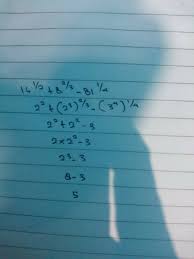 14^{1/2} + 8^{2/3} - 81^{1/4}
2^2 + (2^3)^{2/3} - (3^4)^{1/4}
2^2 + 2^2 - 3
2 × 2^2 - 3
2^3 - 3
8 - 3
5